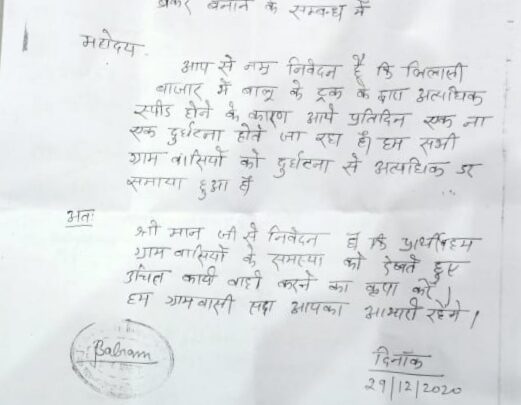 ब्रेकर बनाने के सम्बन्ध में
महोदय
आप से नम्र निवेदन है कि बिलासी
बाजार में बालू के ट्रक के द्वारा अत्यधिक
स्पीड होने के कारण आये प्रतिदिन एक ना
एक दुर्घटना होते जा रहा है। हम सभी
ग्राम वासियों को दुर्घटना से अत्यधिक डर
समाया हुआ है।
अतः
श्री मान जी से निवेदन है कि प्रार्थी हम
ग्राम वासियों के समस्या को देखते हुए
उचित कार्य वाही करने का कृपा करें।
हम ग्रामवासी सदा आपका आभारी रहेंगे।
Balram
दिनाँक
29/12/2020